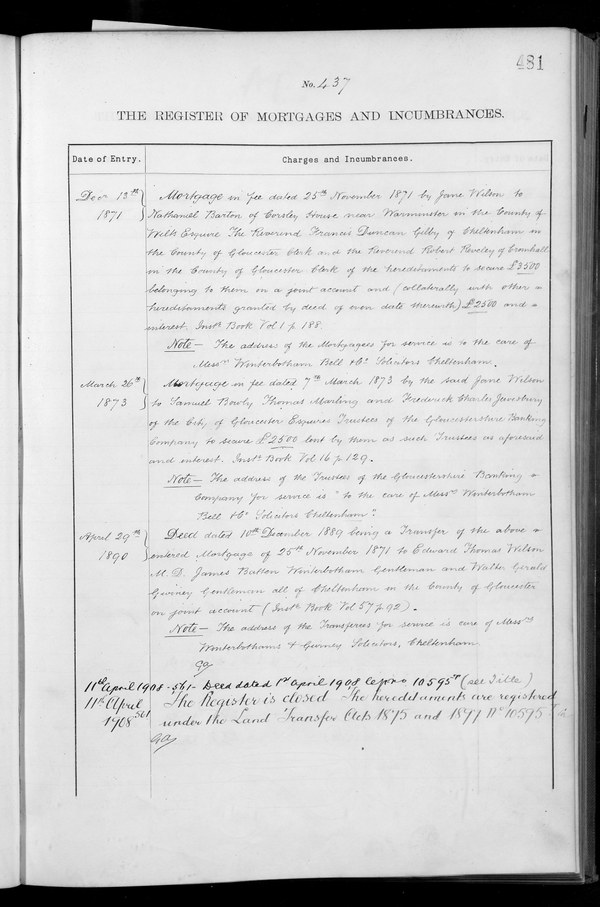 481
No. 437
THE REGISTER OF MORTGAGES AND INCUMBRANCES.
Date of Entry. Charges and Incumbrances.
Decr 13th 1871
Mortgage in fee dated 25th November 1871 by Jane Wilson to
Nathaniel Barton of Corsley House near Warminster in the County of
Wilts Esquire The Reverend Francis Duncan Gilby of Cheltenham in
the County of Gloucester Clerk and the Reverend Robert Reveley of
in the County of Gloucester Clerk of the hereditaments to secure £3500
belonging to them on a joint account and (collaterally with other
hereditaments granted by deed of even date therewith) £2500 and
interest. Instt Book Vol 1 p 188.
Note — The address of the Mortgagees for service is to the care of
Messrs Winterbotham Bell & Co Solicitors Cheltenham.
March 26th 1873
Mortgage in fee dated 7th March 1873 by the said Jane Wilson
to Samuel Bowly Thomas Marling and Frederick Charles
of the City of Gloucester Esquires Trustees of the Gloucestershire Banking
Company to secure £2500 lent by them as such Trustees as aforesaid
and interest. Instt Book Vol 16 p 129.
Note — The address of the Trustees of the Gloucestershire Banking
Company for service is "to the care of Messrs Winterbotham
Bell & Co Solicitors Cheltenham".
April 29th 1890
Deed dated 10th December 1889 being a Transfer of the above
entered Mortgage of 25th November 1871 to Edward Thomas Wilson
M.D. James Batten Winterbotham Gentleman and Walter Gerald
Gurney Gentleman all of Cheltenham in the County of Gloucester
on joint account (Instt Book Vol 57 p 92).
Note — The address of the Transferees for service is care of Messrs
Winterbothams & Gurney Solicitors, Cheltenham
11th April 1908 - 561 - Deed dated 1st April 1908 10595 (see Title)
11th April 1908 561
The Register is closed The hereditaments are registered
under the Land Transfer Acts 1875 and 1897 No 10595